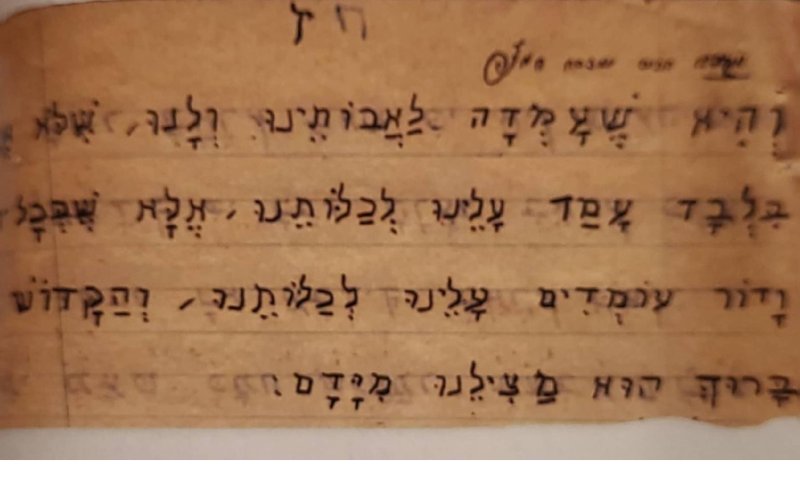 וְהִיא שֶׁעָמְדָה לַאֲבוֹתֵינוּ וְלָנוּ, שֶׁלֹּא
בִּלְבָד עָמַד עָלֵינוּ לְכַלּוֹתֵנוּ, אֶלָּא שֶׁבְּכָל
וָדוֹר עוֹמְדִים עָלֵינוּ לְכַלּוֹתֵנוּ, וְהַקָּדוֹשׁ
בָּרוּךְ הוּא מַצִּילֵנוּ מִיָּדָם.